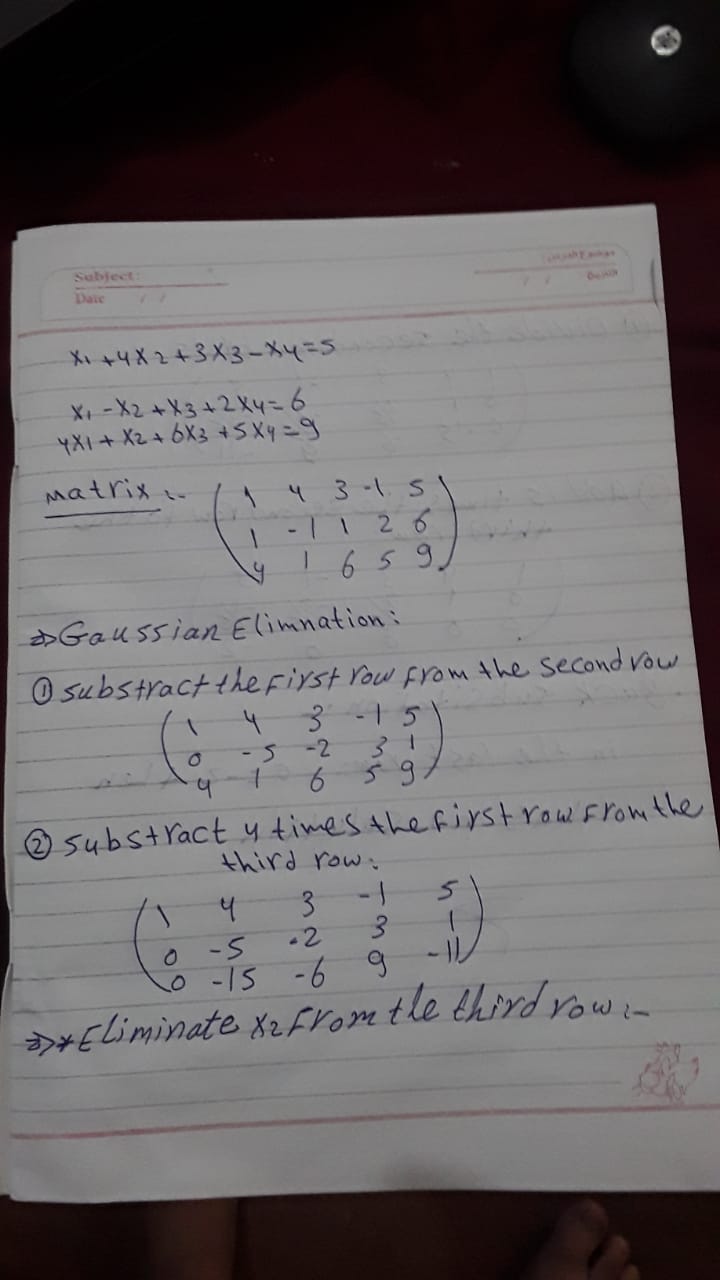 Subject:
Date / /
X1+4X2+3X3-X4=5
X1-X2+X3+2X4=6
4X1+X2+6X3+5X4=9
matrix:-
1 4 3 -1 5
1 -1 1 2 6
4 1 6 5 9
⇒Gaussian Elimnation:
① substract the first row from the second row
1 4 3 -1 5
0 -5 -2 3 1
4 1 6 5 9
② substract 4 times the first row from the
third row:
1 4 3 -1 5
0 -5 -2 3 1
0 -15 -6 9 -11
⇒*Eliminate X2 From tle third row:-